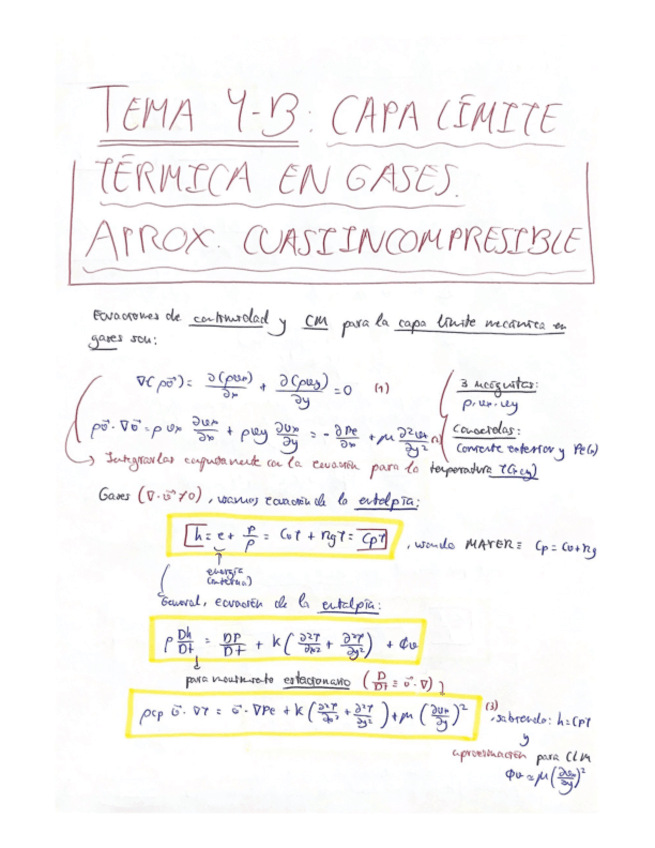 TEMA 4-B: CAPA LÍMITE
TÉRMICA EN GASES.
APROX. CUASIINCOMPRESIBLE
Ecuaciones de continuidad y CM para la capa límite mecánica en
gases son:
∇(ρv⃗) = ∂(ρvx)/∂x + ∂(ρvy)/∂y = 0 (1)
3 incógnitas:
ρ, vx, vy
ρv⃗·∇v⃗ = ρvx ∂vx/∂x + ρvy ∂vx/∂y = -∂Pe/∂x + μ ∂²vx/∂y² (2)
Conocidas:
Corriente exterior y Pe(x)
Integrarlas conjuntamente con la ecuación para la temperatura T(x,y)
Gases (∇·v⃗≠0), usamos ecuación de la entalpía:
h = e + P/ρ = CvT + RgT = CpT, usando MAYER ≡ Cp = Cv + Rg
energía
interna
General, ecuación de la entalpía:
ρ Dh/Dt = DP/Dt + k(∂²T/∂x² + ∂²T/∂y²) + Φv
para movimiento estacionario (D/Dt ≡ v⃗·∇)
ρcp v⃗·∇T = v⃗·∇Pe + k(∂²T/∂x² + ∂²T/∂y²) + μ(∂vx/∂y)² (3), sabiendo: h=CpT
y
aproximación para CLM
Φv ≈ μ(∂vx/∂y)²